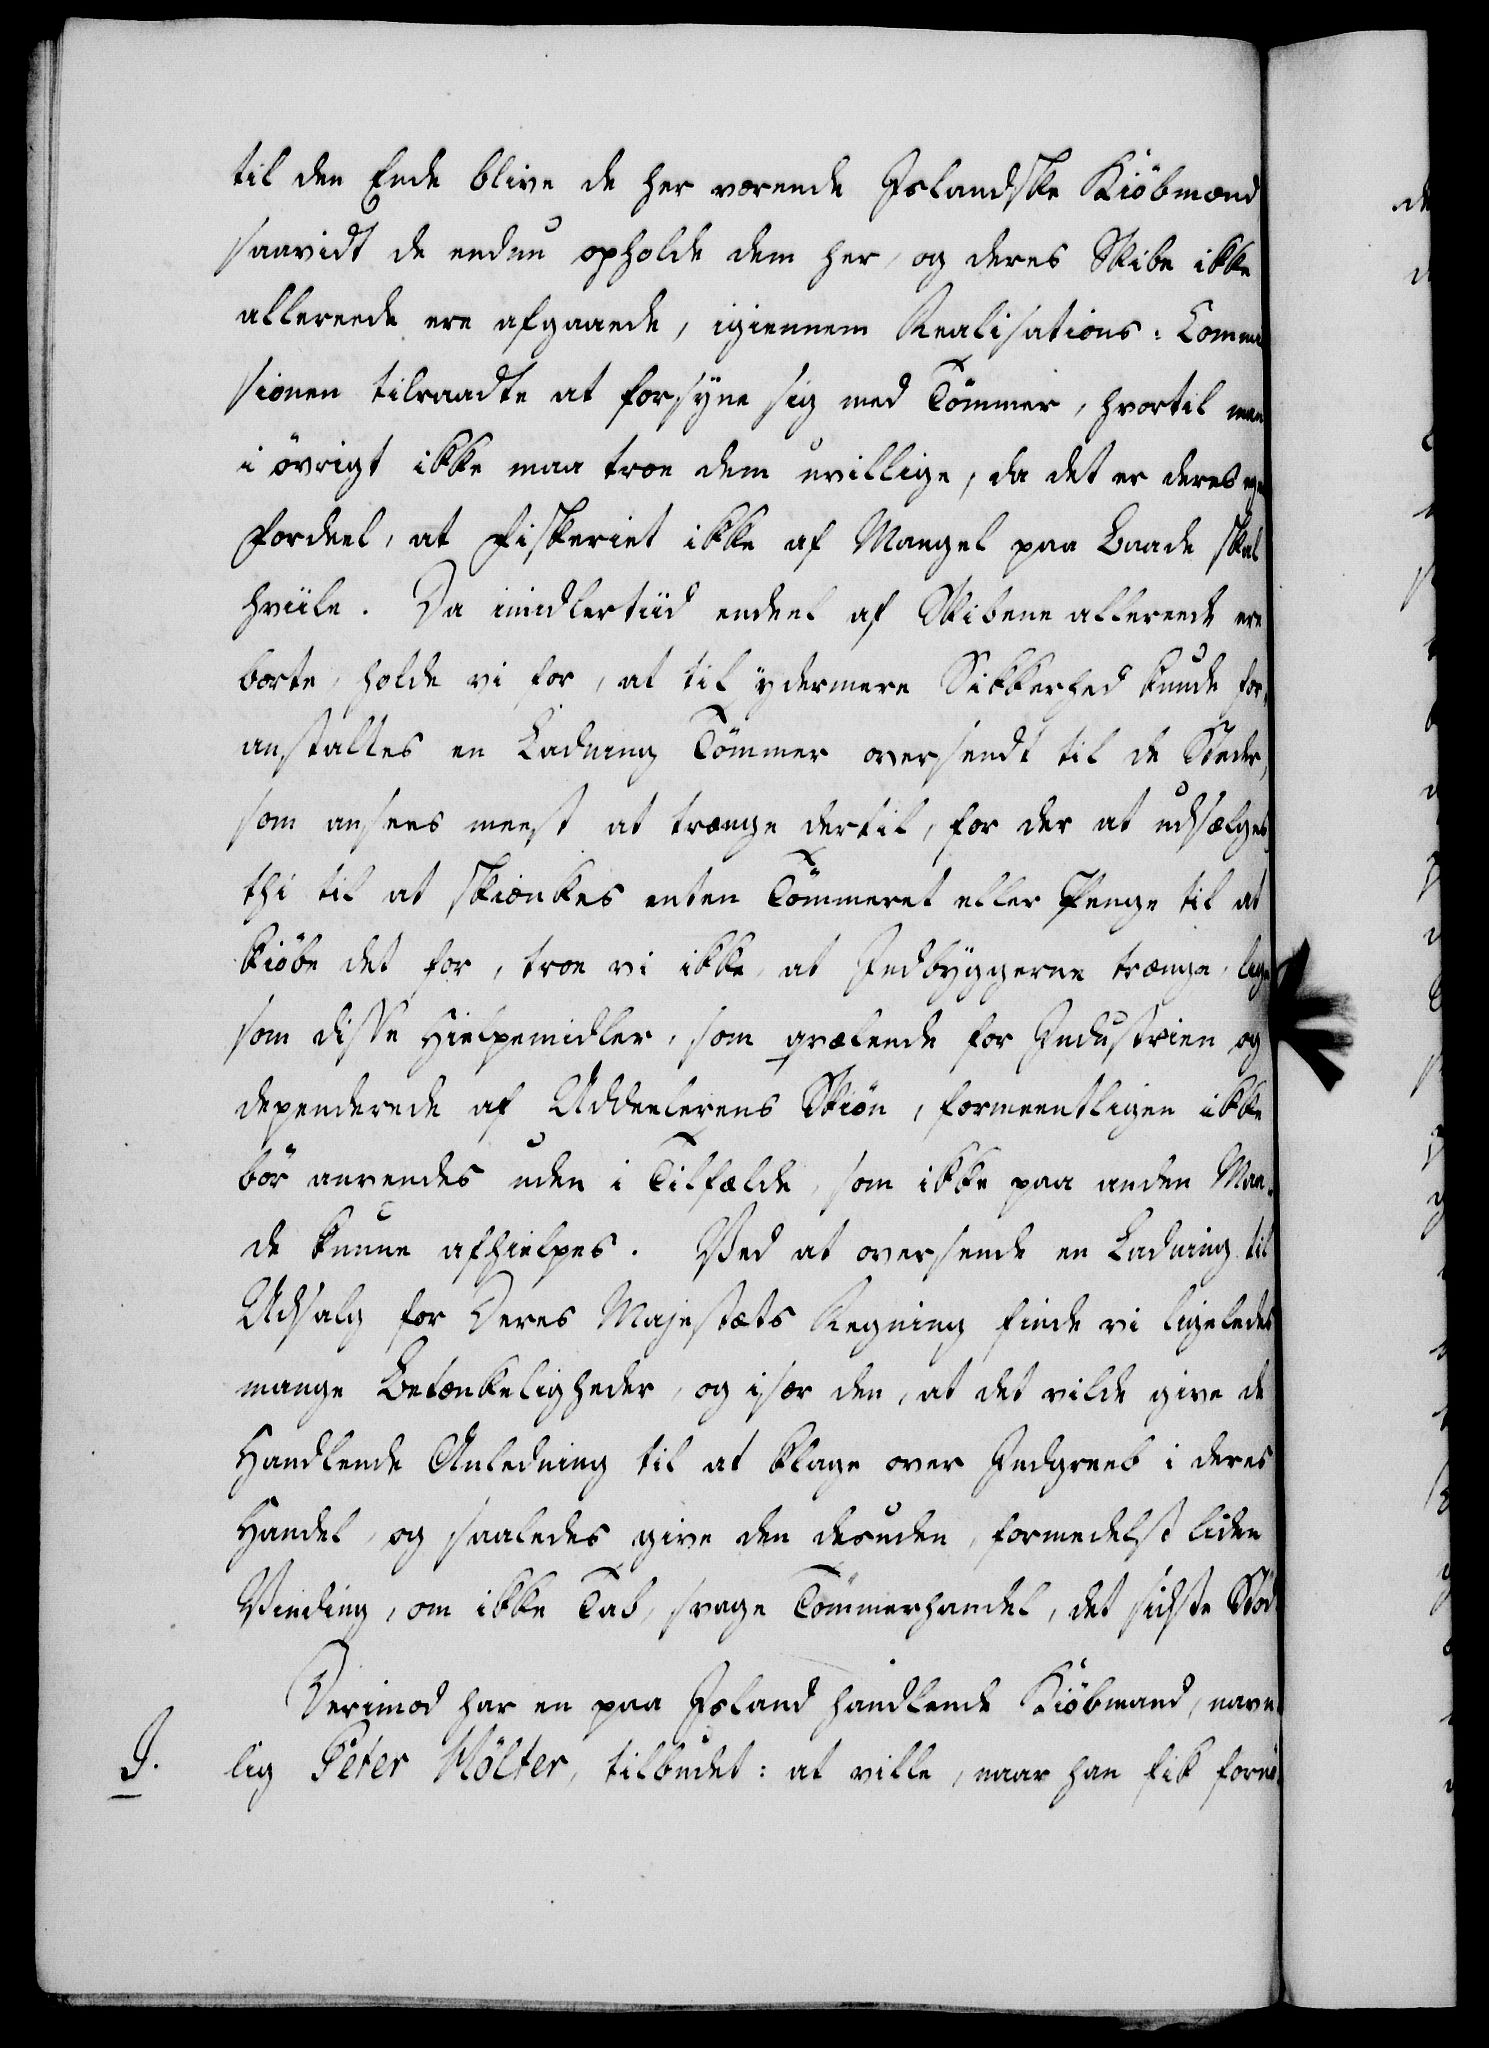 til den Ende blive de her værende Islandske Kiöbmænd
saavidt de endnu opholde dem her, og deres Skibe ikke
allereede ere afgaaede, igiennem Realisations: Commis
sionen tilraadte at forsÿne sig med Tömmer, hvortil man
i övrigt ikke maa troe dem uvillige, da det er deres egen
Fordeel, at Fiskeriet ikke af Mangel paa Baade skal
hviile. Da imidlertiid endeel af Skibene allereede ere
borte, holde vi for, at til ÿdermere Sikkerhed kunde for,
anstaltes en Ladning Tömmer oversendt til de Steder,
som ansees meest at trænge dertil, for der at udsælges
thi til at skiænkes enten Tömmeret eller Penge til at
kiöbe det for, troe vi ikke, at Indbÿggerne trænge, lige
som disse Hielpemidler, som qvælende for Industrien og
dependerede af Uddeelerens Skiön, formeentligen ikke
bör anvendes uden i Tilfælde, som ikke paa anden Maa,
de kunne afhielpes. Ved at oversende en Ladning til
Udsalg for Deres Majestæts Regning finde vi ligeledes
mange Betænkeligheder, og især den, at det vilde give de
Handlende Anledning til at klage over Indgreeb i deres
Handel, og saaledes give den desuden, formedelst liden
Vinding, om ikke Tab, svage Tömmerhandel, det sidste Stöd.
Derimod har en paa Island handlende Kiöbmand, navn,
J. lig Peter Hölter, tilbudet: at ville, naar han fik fornö,